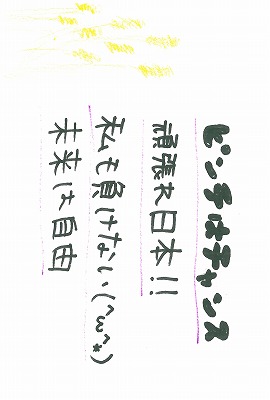 ピンチはチャンス
頑張れ日本!!
私も負けない(^ω^*)
未来は自由